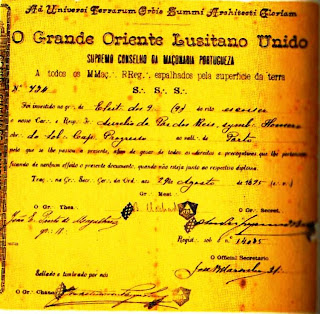 Ad Universi Terrarum Orbis Summi Architecti Gloriam
O Grande Oriente Lusitano Unido
SUPREMO CONSELHO DA MAÇONARIA PORTUGUEZA
A todos os MMaç∴ RReg∴ espalhados pela superficie da terra
N.º 734 S∴ S∴ S∴
Foi investido no gr∴ de Eleit dos 9 (9º) do rito
o nosso Car∴ e Resp∴ Ir∴ Aurelio da Paz dos Reis, symb∴
da Lol∴ Cap∴ Progresso ao vall∴ de Porto
pelo que se lhe passou o presente, afim de gozar de todos os direitos e prerogativas que lhe pertencem,
ficando de nenhum effeito o presente documento, quando não esteja junto ao respectivo diploma.
Traç∴ na Gr∴ Secr∴ Ger∴ da Ord∴ em de Agosto de 1895 (e∴ v∴)
Gr∴ Mest∴
O Gr∴ Thes∴ O Gr∴ Secret∴
João E.
Regist∴ sob n.º 14085
O Official Secretario
Sellado e timbrado por nós
José
O Gr∴ Chanc∴